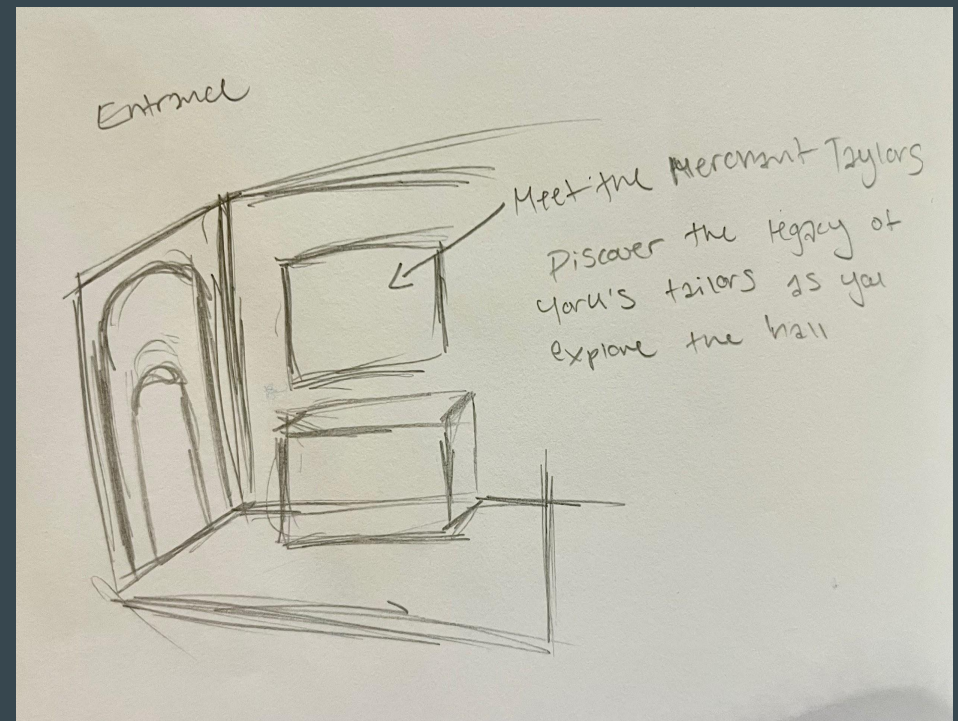 Entrance
Meet the Merchant Taylors
Discover the legacy of
York's tailors as you
explore the hall